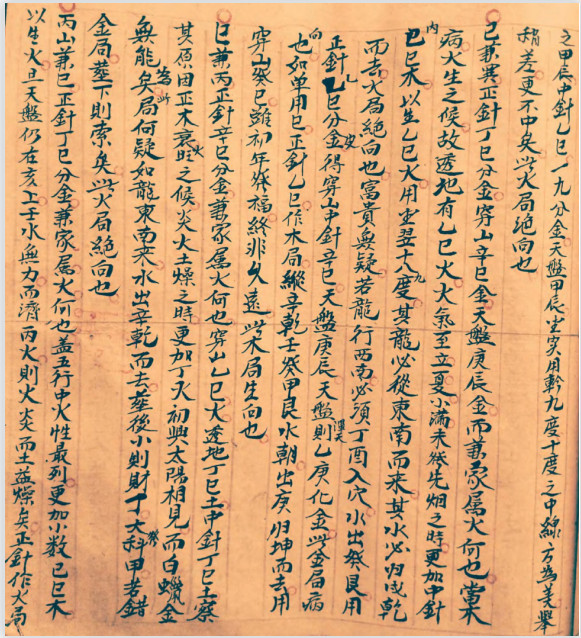 之甲辰中針乙巳一九分金天盤甲辰坐实用軫九度十度之中線方為美舉
稍差更不中矣此火局絕向也
巳兼巽正針丁巳分金穿山辛巳金天盤庚辰金而兼家属火何也當木
病火生之候故透地有乙巳火火氣至立夏小滿未後先烟之時更加中針
内巳巳木以生乙巳火用坐翌十八九度其龍必從東南而来其水必归戌乾
而去火局絕向也富貴無疑若龍行西南必須丁酉入穴水出癸艮用
正針乙巳分金得穿山中針辛巳天盤庚辰天盤則乙庚化金此金局病
向也如单用巳正針乙巳作木局縱辛乾壬癸甲艮水朝出庚归坤而去用
穿山癸巳雖初年發福終非久遠此木局生向也
巳兼丙正針辛巳分金兼家属火何也穿山乙巳火透地丁巳土中針丁巳土察
其原因正木衰旺火之候炎火土燥之時更加丁火初興太陽相見而白蠟金
無能為所矣局何疑如龍東南来水出辛乾而去塟後小則財丁大發科甲若錯
金局塟下則索矣此火局絕向也
丙山兼巳正針丁巳分金兼家属火何也盖五行中火性最烈更加小数己巳木
以生火旦天盤仍在亥上壬水無力而濟丙火則火炎而土益燥矣正針作火局